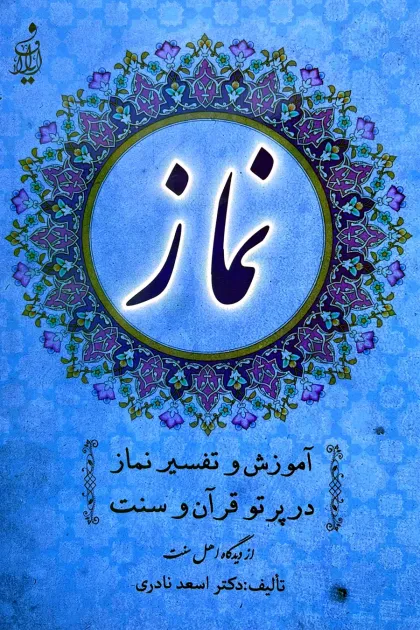 نماز
آموزش و تفسیر نماز
در پرتو قرآن و سنت
از دیدگاه اهل سنت
تألیف: دکتر اسعد نادری